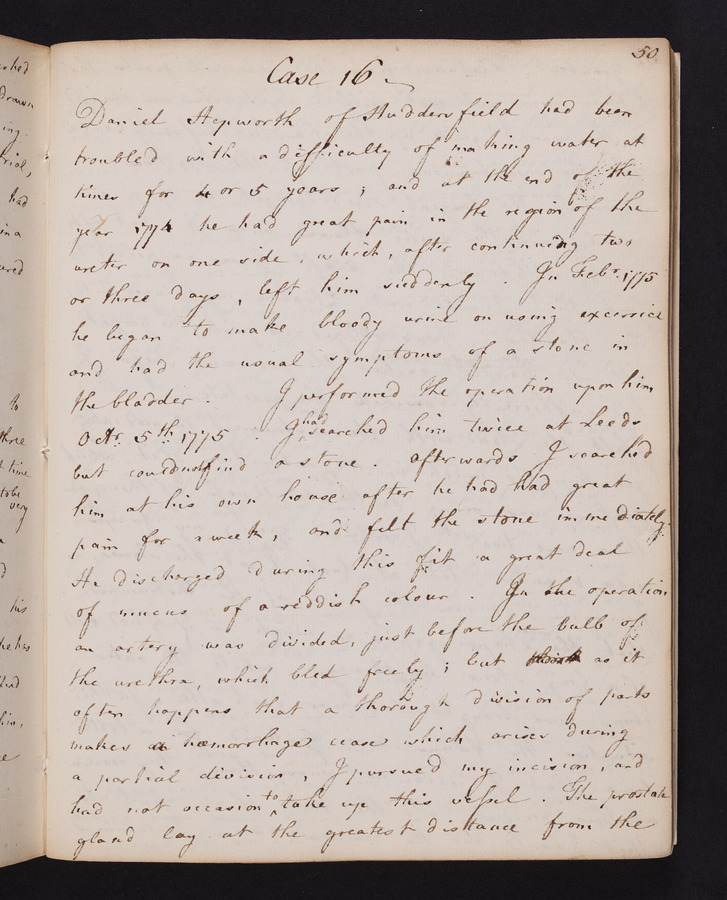 50
Case 16
Daniel Hepworth of Huddersfield had been
troubled with a difficulty of making water at
times for 4 or 5 years; and at the end of the
year 1774 he had great pain in the region of the
ureter on one side, which, after continuing two
or three days, left him suddenly. In Febr. 1775
he began to make bloody urine on using excercice
and had the usual symptoms of a stone in
the bladder. I performed the operation upon him
Octr. 5th 1775. I had searched him twice at Leeds
but could not find a stone. afterwards I searched
him at his own house after he had had great
pain for a week, and felt the stone immediately.
He discharged during this fit a great deal
of mucus of a reddish colour. In the operation
an artery was divided, just before the bulb of
the urethra, which bled freely; but as it
often happens that a thorough division of parts
makes a hæmorrhage cease which arises during
a partial division, I pursued my incision, and
had not occasion to take up this vessel. The prostate
gland lay at the greatest distance from the